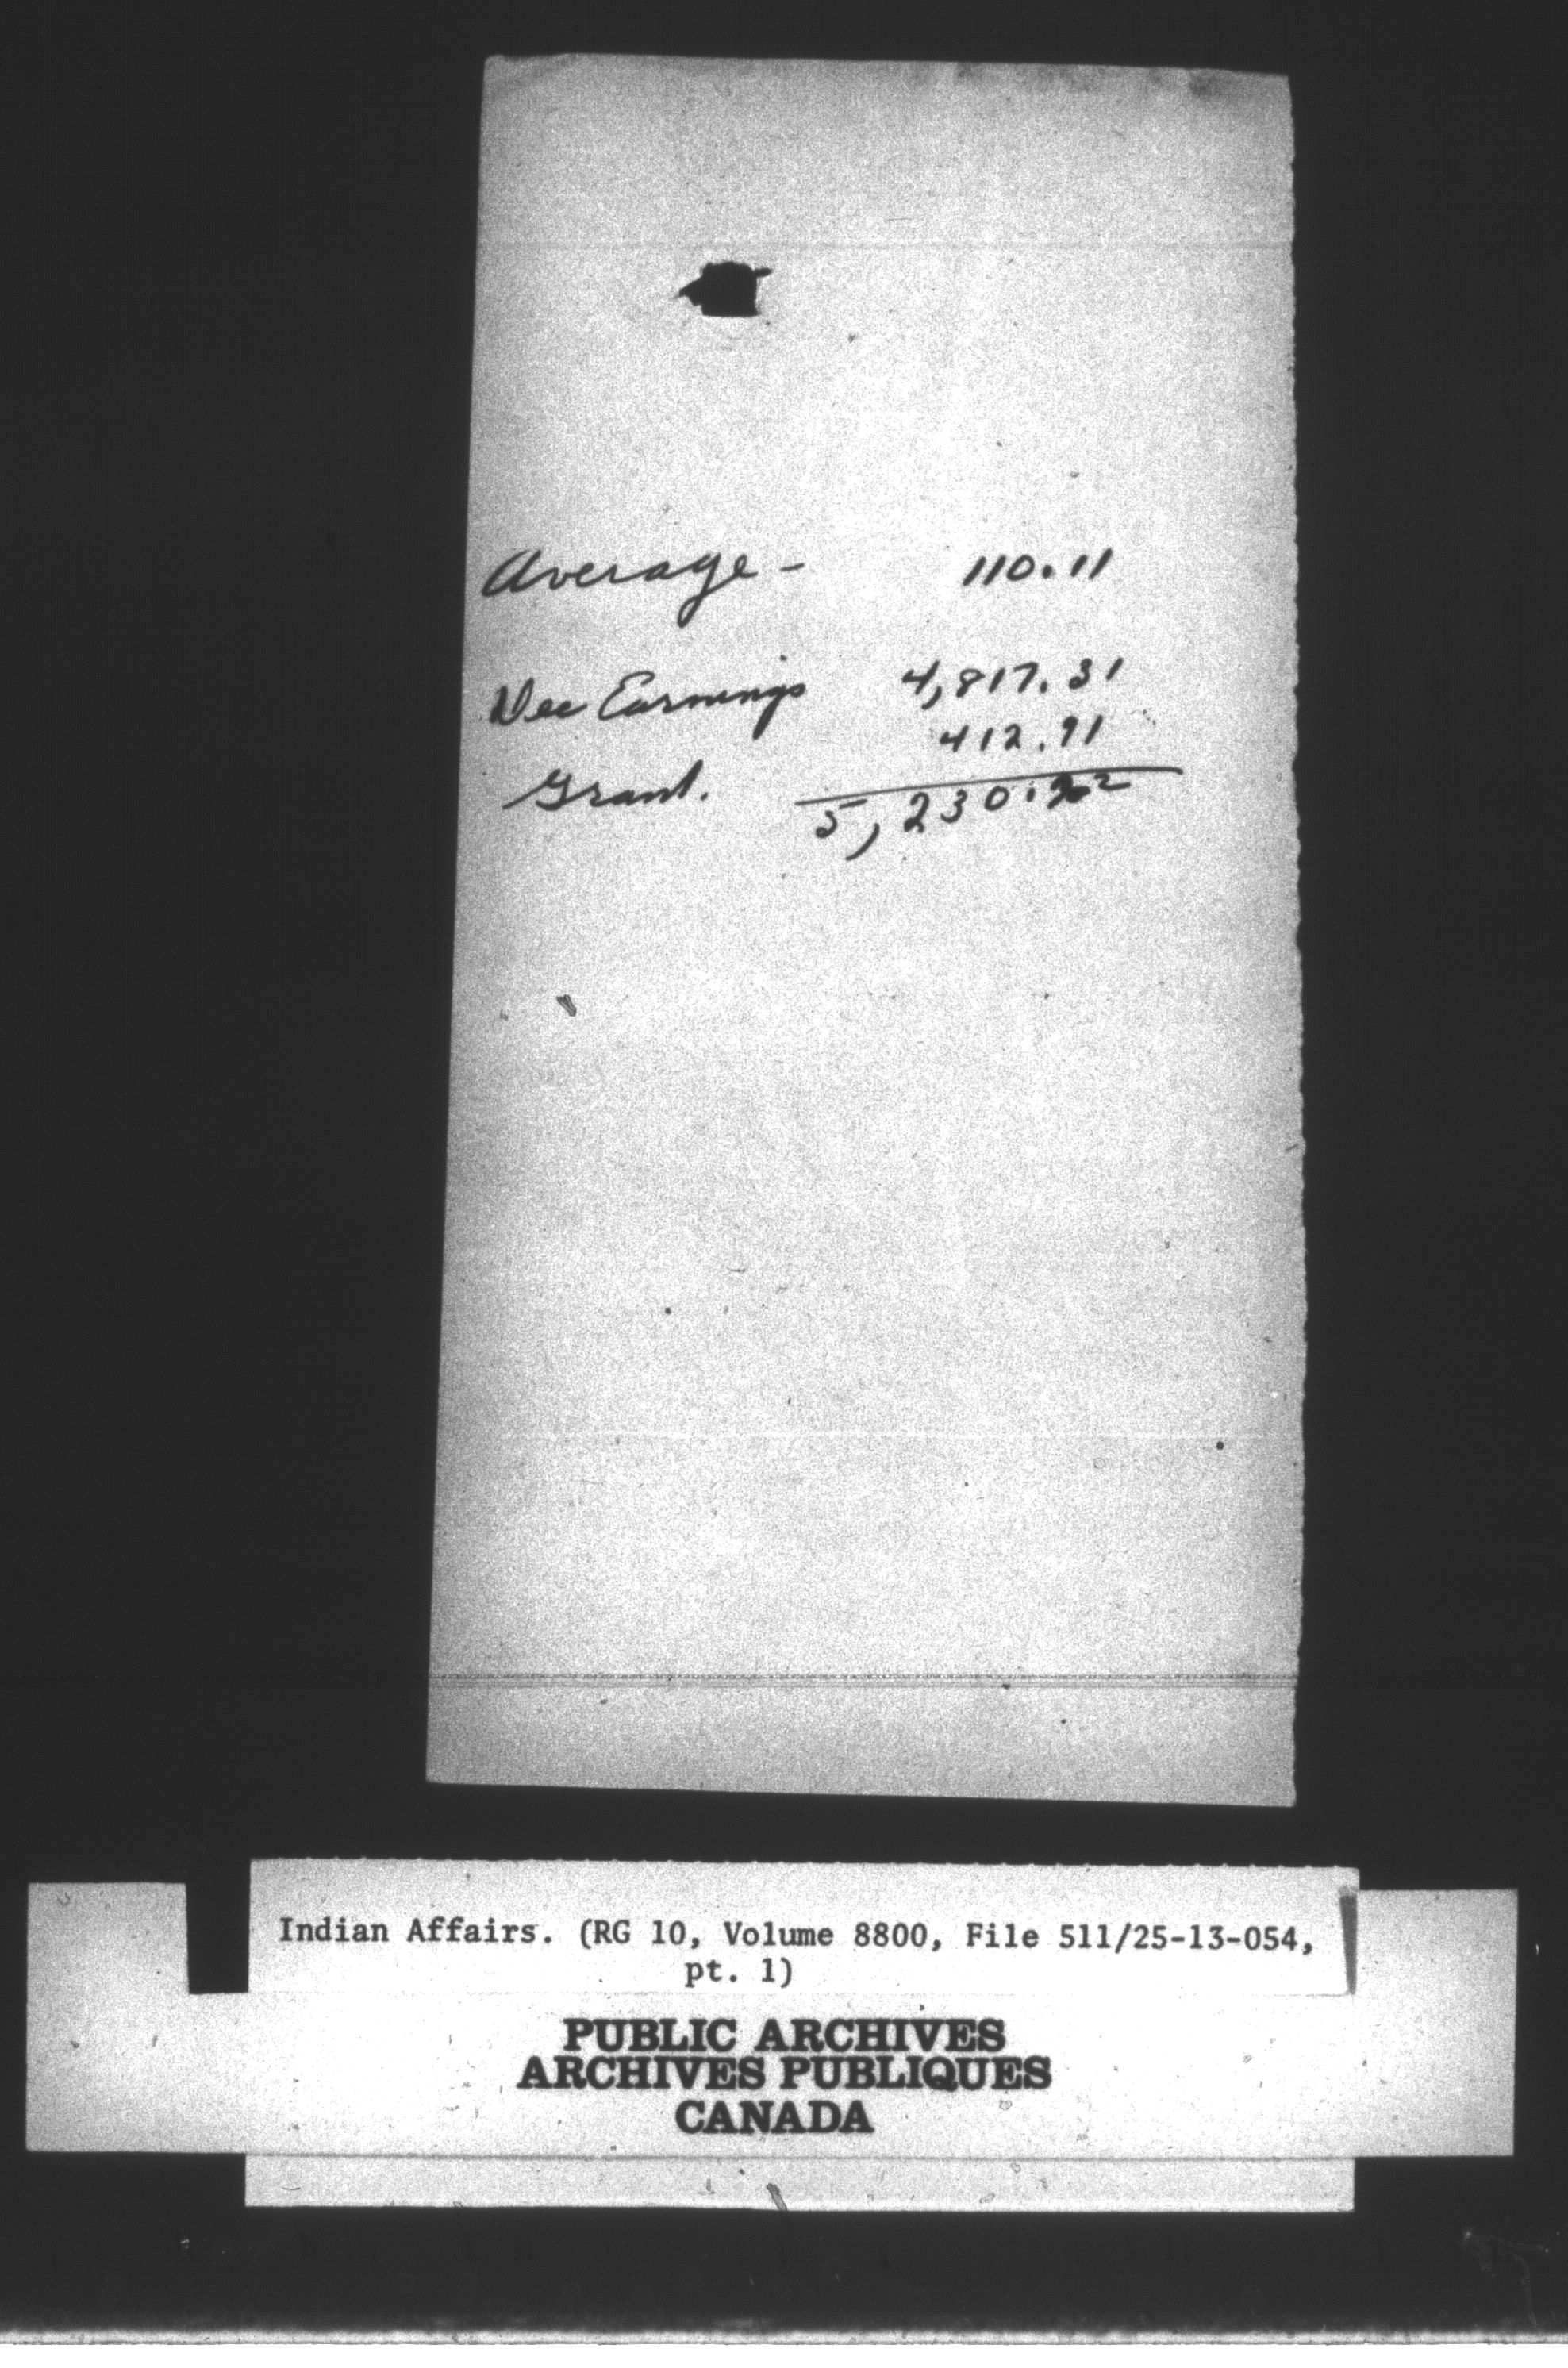 Average - 110.11
Dec Earnings 4,817.31
412.91
Grant.
5,230.22
Indian Affairs. (RG 10, Volume 8800, File 511/25-13-054,
pt. 1)
PUBLIC ARCHIVES
ARCHIVES PUBLIQUES
CANADA